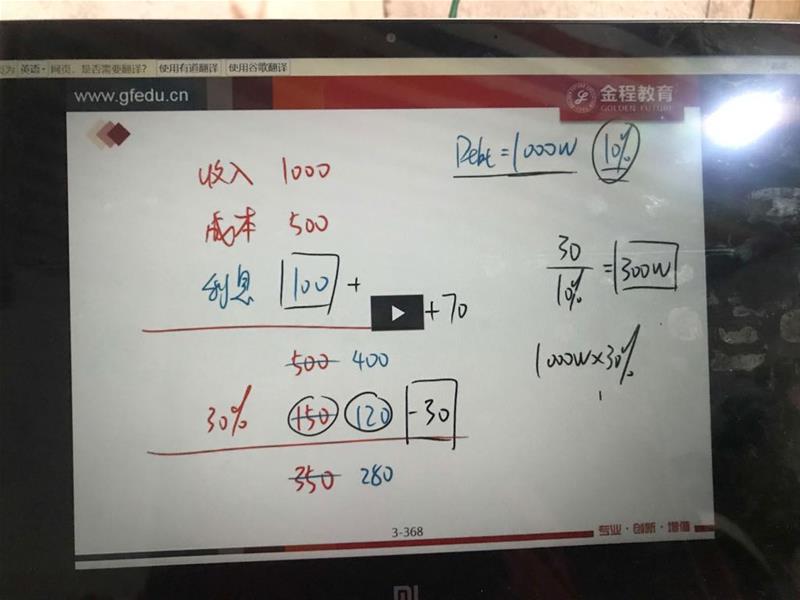 英语 - 网页,是否需要翻译? 使用有道翻译 使用谷歌翻译
www.gfedu.cn
金程教育
GOLDEN FUTURE
Debt = 1000W 10%
收入 1000
成本 500
利息 100 +
+70
30/10% = 300W
500 400
1000W×30%
30% 150 120 -30
350 280
3-368
专业·创新·增值